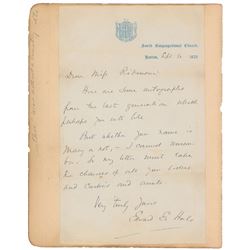 South Congregational Church,
Boston, 187
Dear Miss Robinson
Here are some autographs
from the last generation which
perhaps you will like
But whether your name is
Mary or not, — I cannot remem
ber. So my letter must take
the chances of all your sisters
and cousins and aunts.
Very truly yours
Edward E. Hale